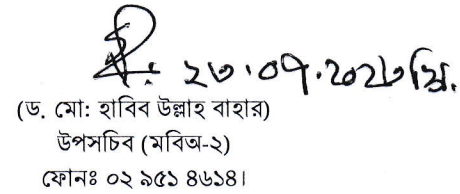 ২৩.০৭.২০২৩ খ্রি.
(ড. মো: হাবিব উল্লাহ বাহার)
উপসচিব (মবিঅ-২)
ফোনঃ ০২ ৯৫১ ৪৬১৪।